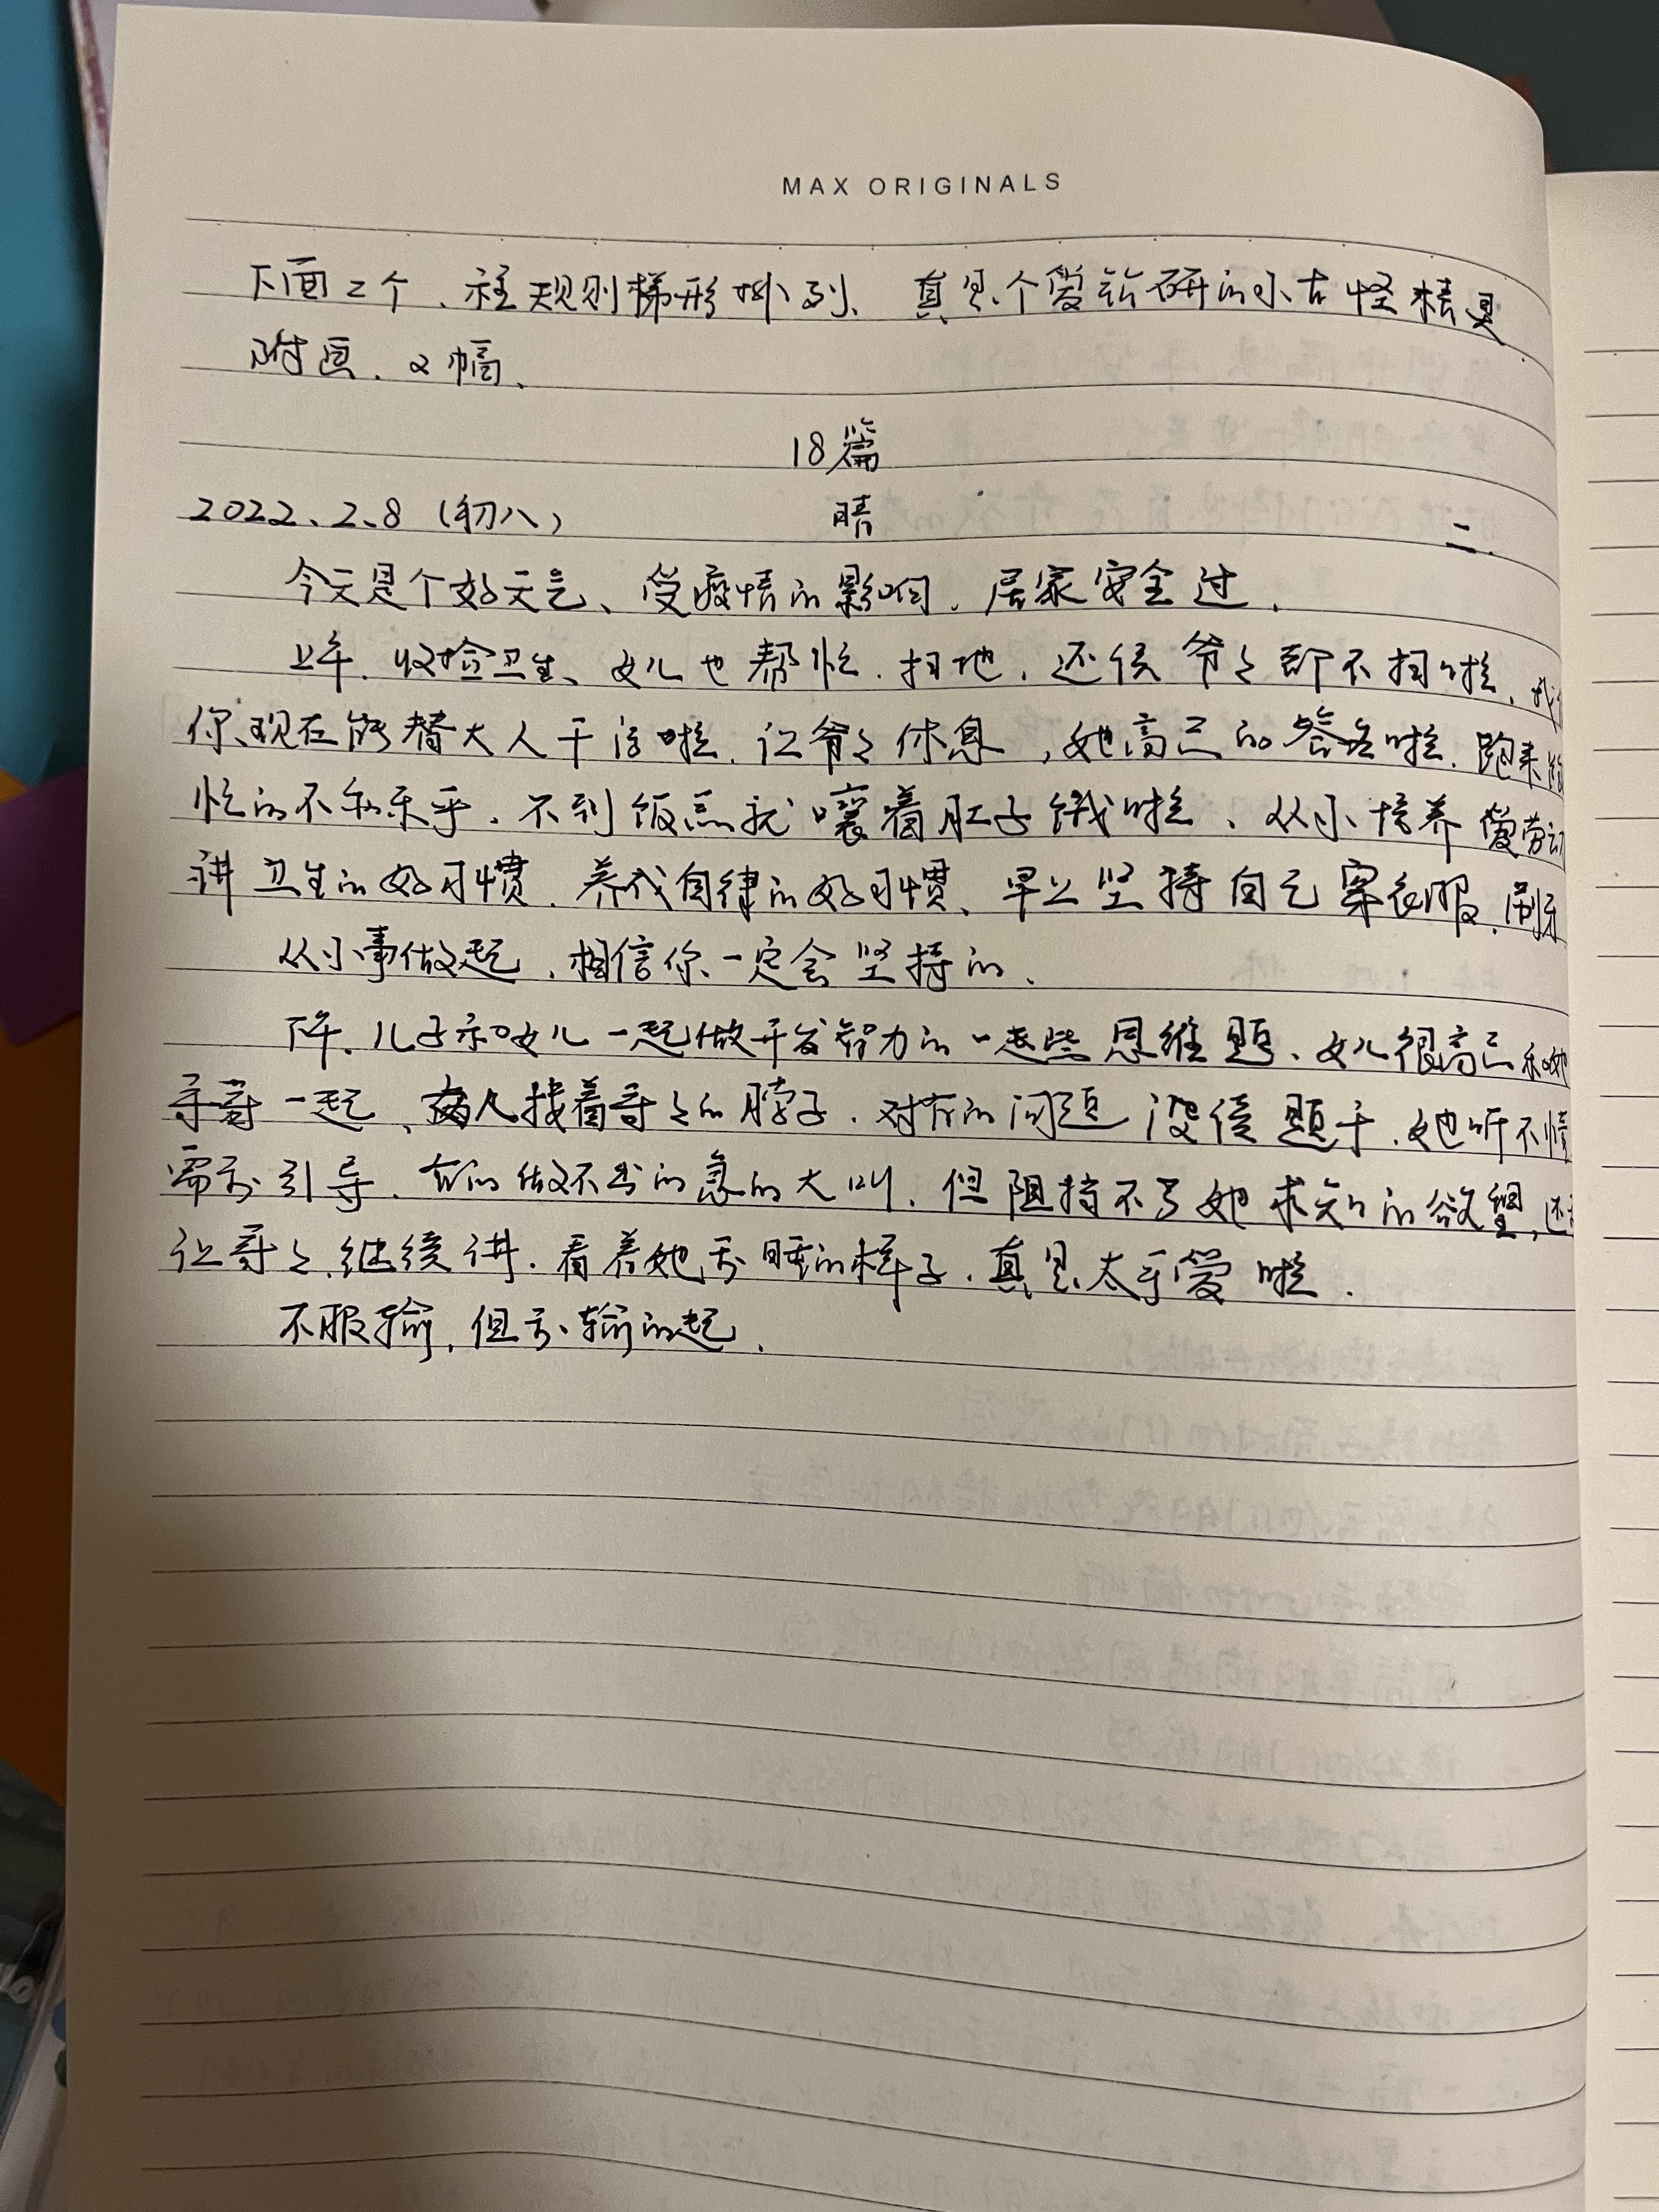 MAX ORIGINALS
下面二个、在规则梯形排列、真是个爱钻研的小古怪精灵
附画、2幅、
18篇
2022、2、8（初八） 晴 二.
今天是个好天气、受疫情的影响、居家安全过、
上午、收捡卫生、女儿也帮忙、扫地、还使爷々都不扫啦、
你、现在能替大人干活啦、让爷々休息,她高兴的答应啦、跑来
忙的不亦乐乎、不到饭点就嚷着肚子饿啦、从小培养爱劳动
讲卫生的好习惯、养成自律的好习惯、早上坚持自己穿衣服、刷牙
从小事做起、相信你一定会坚持的、
下午、儿子和女儿一起做开发智力的一些思维题、女儿很高兴和她
哥哥一起、搂着哥々的脖子、对有的问题没读题干、她听不懂
需要引导、有的做不出的急的大叫、但阻挡不了她求知的欲望,还
让哥々继续讲、看着她要睡的样子、真是太可爱啦、
不服输、但要输的起、